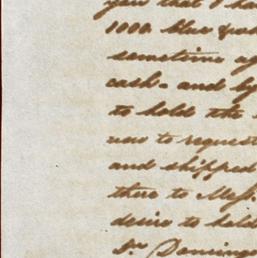 you that I ha
1000 blue &
sometime ag
cash - and by
to hold the
now to request
and shipped
there to Mess.
desire to hold
Sn Domingo